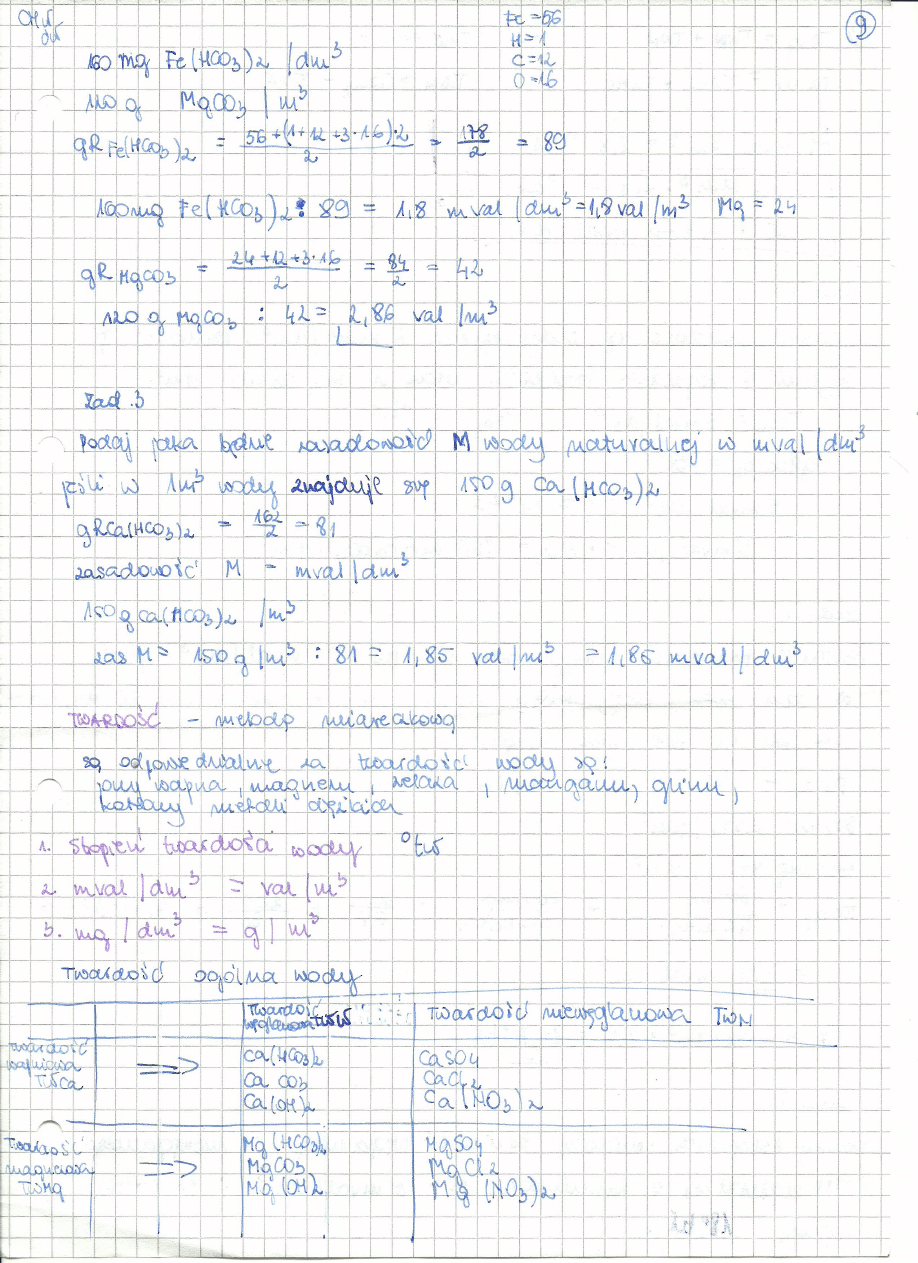 Fe = 56
H = 1
C = 12
O = 16
9
160 mg Fe(HCO3)2 / dm³
120 g MgCO3 / m³
gR Fe(HCO3)2 = 56 + (1+12+3·16)·2 / 2 = 178 / 2 = 89
160 mg Fe(HCO3)2 : 89 = 1,8 mval / dm³ = 1,8 val / m³ Mg = 24
gR MgCO3 = 24+12+3·16 / 2 = 84 / 2 = 42
120 g MgCO3 : 42 = 2,86 val / m³
Zad. 3
Podaj jaka będzie zasadowość M wody naturalnej w mval / dm³
jeśli w 1m³ wody znajduje się 150 g Ca(HCO3)2
gR Ca(HCO3)2 = 162 / 2 = 81
zasadowość M – mval / dm³
150 g Ca(HCO3)2 / m³
zas M = 150 g / m³ : 81 = 1,85 val / m³ = 1,85 mval / dm³
TWARDOŚĆ – metodą miareczkową
są odpowiedzialne za twardość wody są:
jony wapnia, magnezu, żelaza, manganu, glinu,
kationy metali ciężkich
1. Stopień twardości wody °tw
2. mval / dm³ = val / m³
3. mg / dm³ = g / m³
Twardość ogólna wody
Twardość węglanowa TwW
Twardość niewęglanowa TwN
Twardość wapniowa TwCa
⇒
Ca(HCO3)2 CaSO4
CaCO3 CaCl2
Ca(OH)2 Ca(NO3)2
Twardość magnezowa TwMg
⇒
Mg(HCO3)2 MgSO4
MgCO3 MgCl2
Mg(OH)2 Mg(NO3)2